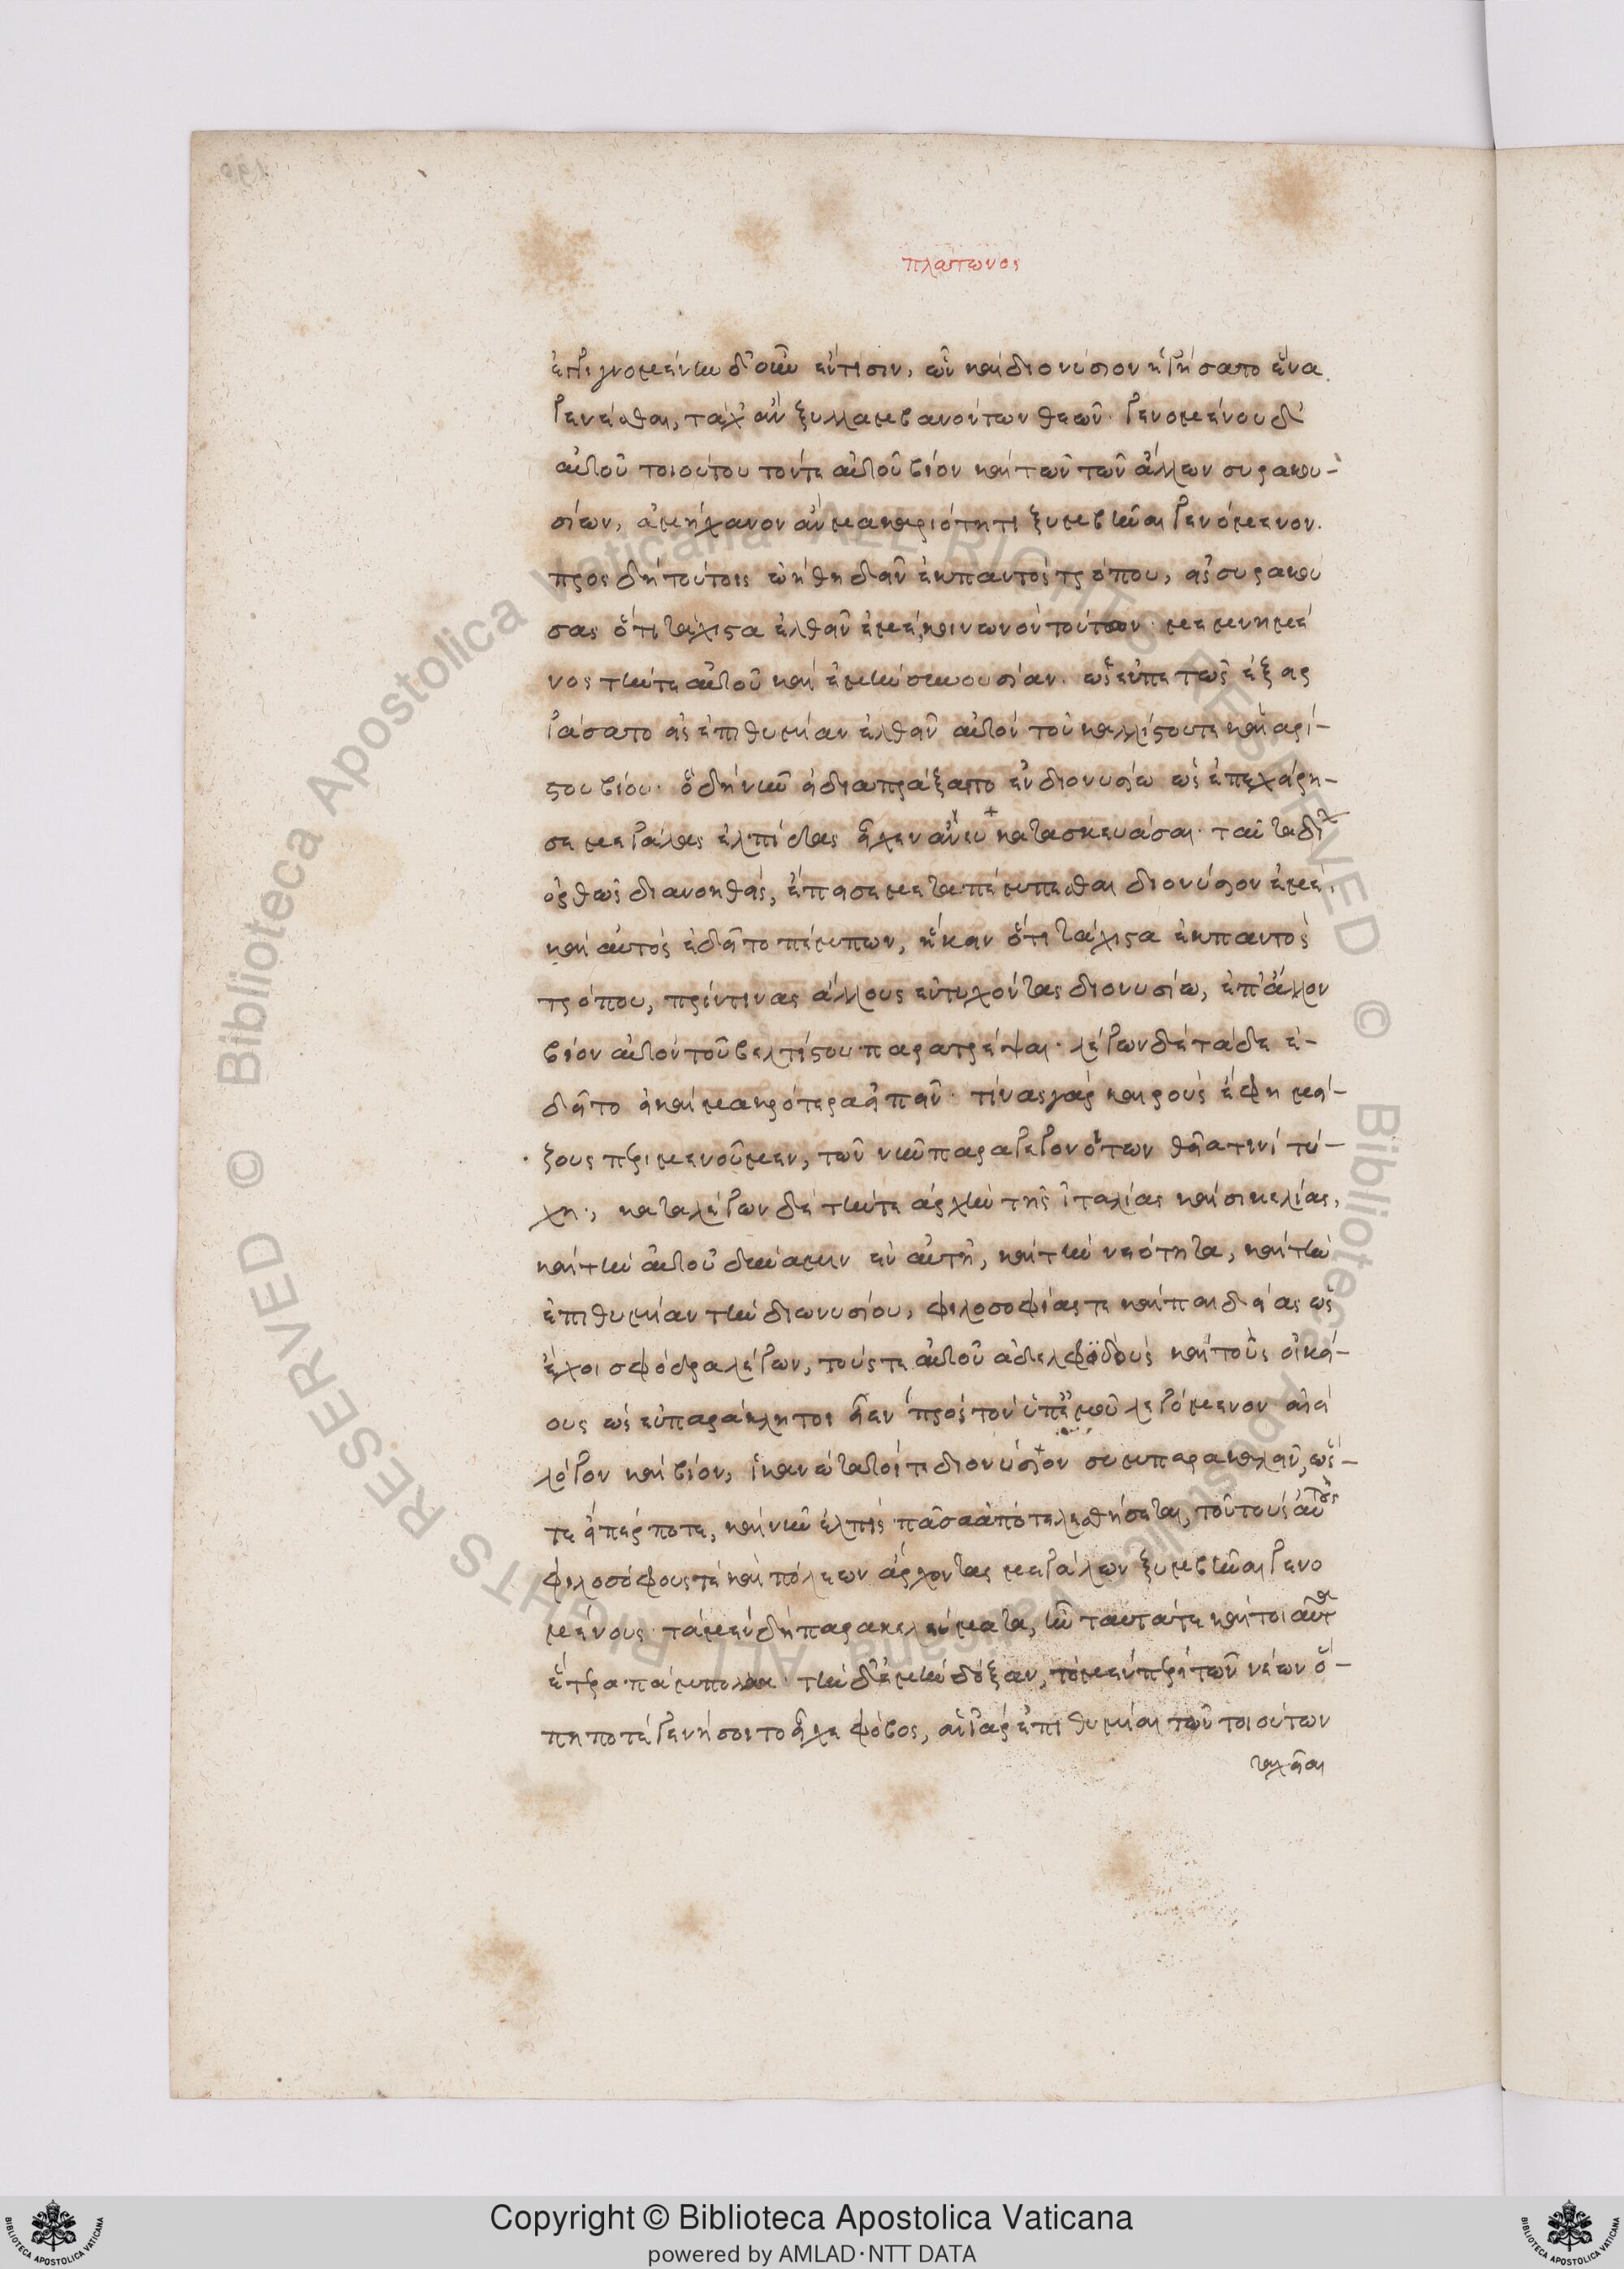 πλάτωνος
ἐπιγνομένην δ' οὖν ἔν τισιν, ὧν καὶ διονύσιον ἡγήσατο ἕνα
γενέσθαι, τάχ' ἂν ξυλλαμβανόντων θεῶν· γενομένου δ'
αὐτοῦ τοιούτου τόν τε αὐτοῦ βίον καὶ τῶν τῶν ἄλλων συρακου-
σίων, ἀμήχανον ἂν μακαριότητι ξυμβῆναι γενόμενον.
πρὸς δὴ τούτοις ὠήθη δεῖν ἐκ παντὸς τρόπου, εἰς συρακού
σας ὅτι τάχιστα ἐλθεῖν ἐμέ, κοινωνὸν τούτων· μεμνημέ
νος τήν τε αὐτοῦ καὶ ἐμὴν συνουσίαν. ὡς εὐπετῶς ἐξειρ
γάσατο εἰς ἐπιθυμίαν ἐλθεῖν αὐτὸν τοῦ καλλίστου τε καὶ ἀρί-
στου βίου· ὃ δὴ νῦν εἰ διαπράξαιτο ἐν διονυσίω ὡς ἐπεχείρη-
σε μεγάλας ἐλπίδας εἶχεν ἄνευ κατασκευάσαι· ταῦτα δὴ
ὀρθῶς διανοηθεὶς, ἔπεισε μεταπέμπεσθαι διονύσιον ἐμέ,
καὶ αὐτὸς ἐδεῖτο πέμπων, ἥκειν ὅτι τάχιστα ἐκ παντὸς
τρόπου, πρίν τινας ἄλλους ἐντυχόντας διονυσίω, ἐπ' ἄλλον
βίον αὐτὸν τοῦ βελτίστου παρατρέψαι· λέγων δὲ τάδε ἐ-
δεῖτο εἰ καὶ μακρότερα εἰπεῖν· τίνας γὰρ καιροὺς ἔφη μεί-
ζους περιμενοῦμεν, τῶν νῦν παραγεγονότων θεία τινὶ τύ-
χη·, καταλέγων δὲ τήν τε ἀρχὴν τῆς ἰταλίας καὶ σικελίας,
καὶ τὴν αὐτοῦ δύναμιν ἐν αὐτῇ, καὶ τὴν νεότητα, καὶ τὴν
ἐπιθυμίαν τὴν διωνυσίου, φιλοσοφίας τε καὶ παιδείας ὡς
ἔχοι σφόδρα λέγων, τούς τε αὐτοῦ ἀδελφϊδοῦς καὶ τοὺς οἰκεί-
ους ὡς εὐπαράκλητοι εἶεν πρὸς τὸν ὑπ' ἐμοῦ λεγόμενον ἀεὶ
λόγον καὶ βίον, ἱκανώτατοί τε διονύσιον συμπαρακαλεῖν, ὥς-
τε εἴπερ ποτε, καὶ νῦν ἐλπὶς πᾶσα ἀποτελεσθήσεται, τοῦ τοὺς αὐτοὺς
φιλοσόφους τε καὶ πόλεων ἄρχοντας μεγάλων ξυμβῆναι γενο
μένους· τὰ μὲν δὴ παρακελεύματα, ἦν ταυτά τε καὶ τοιαῦθ'
ἕτερα πάμπολλα· τὴν δ' ἐμὴν δόξαν, τὸ μὲν περὶ τῶν νέων ὅ-
πη ποτὲ γενήσοιτο εἶχε φόβος, αἱ γὰρ ἐπιθυμίαι τῶν τοιούτων
ταχεῖαι